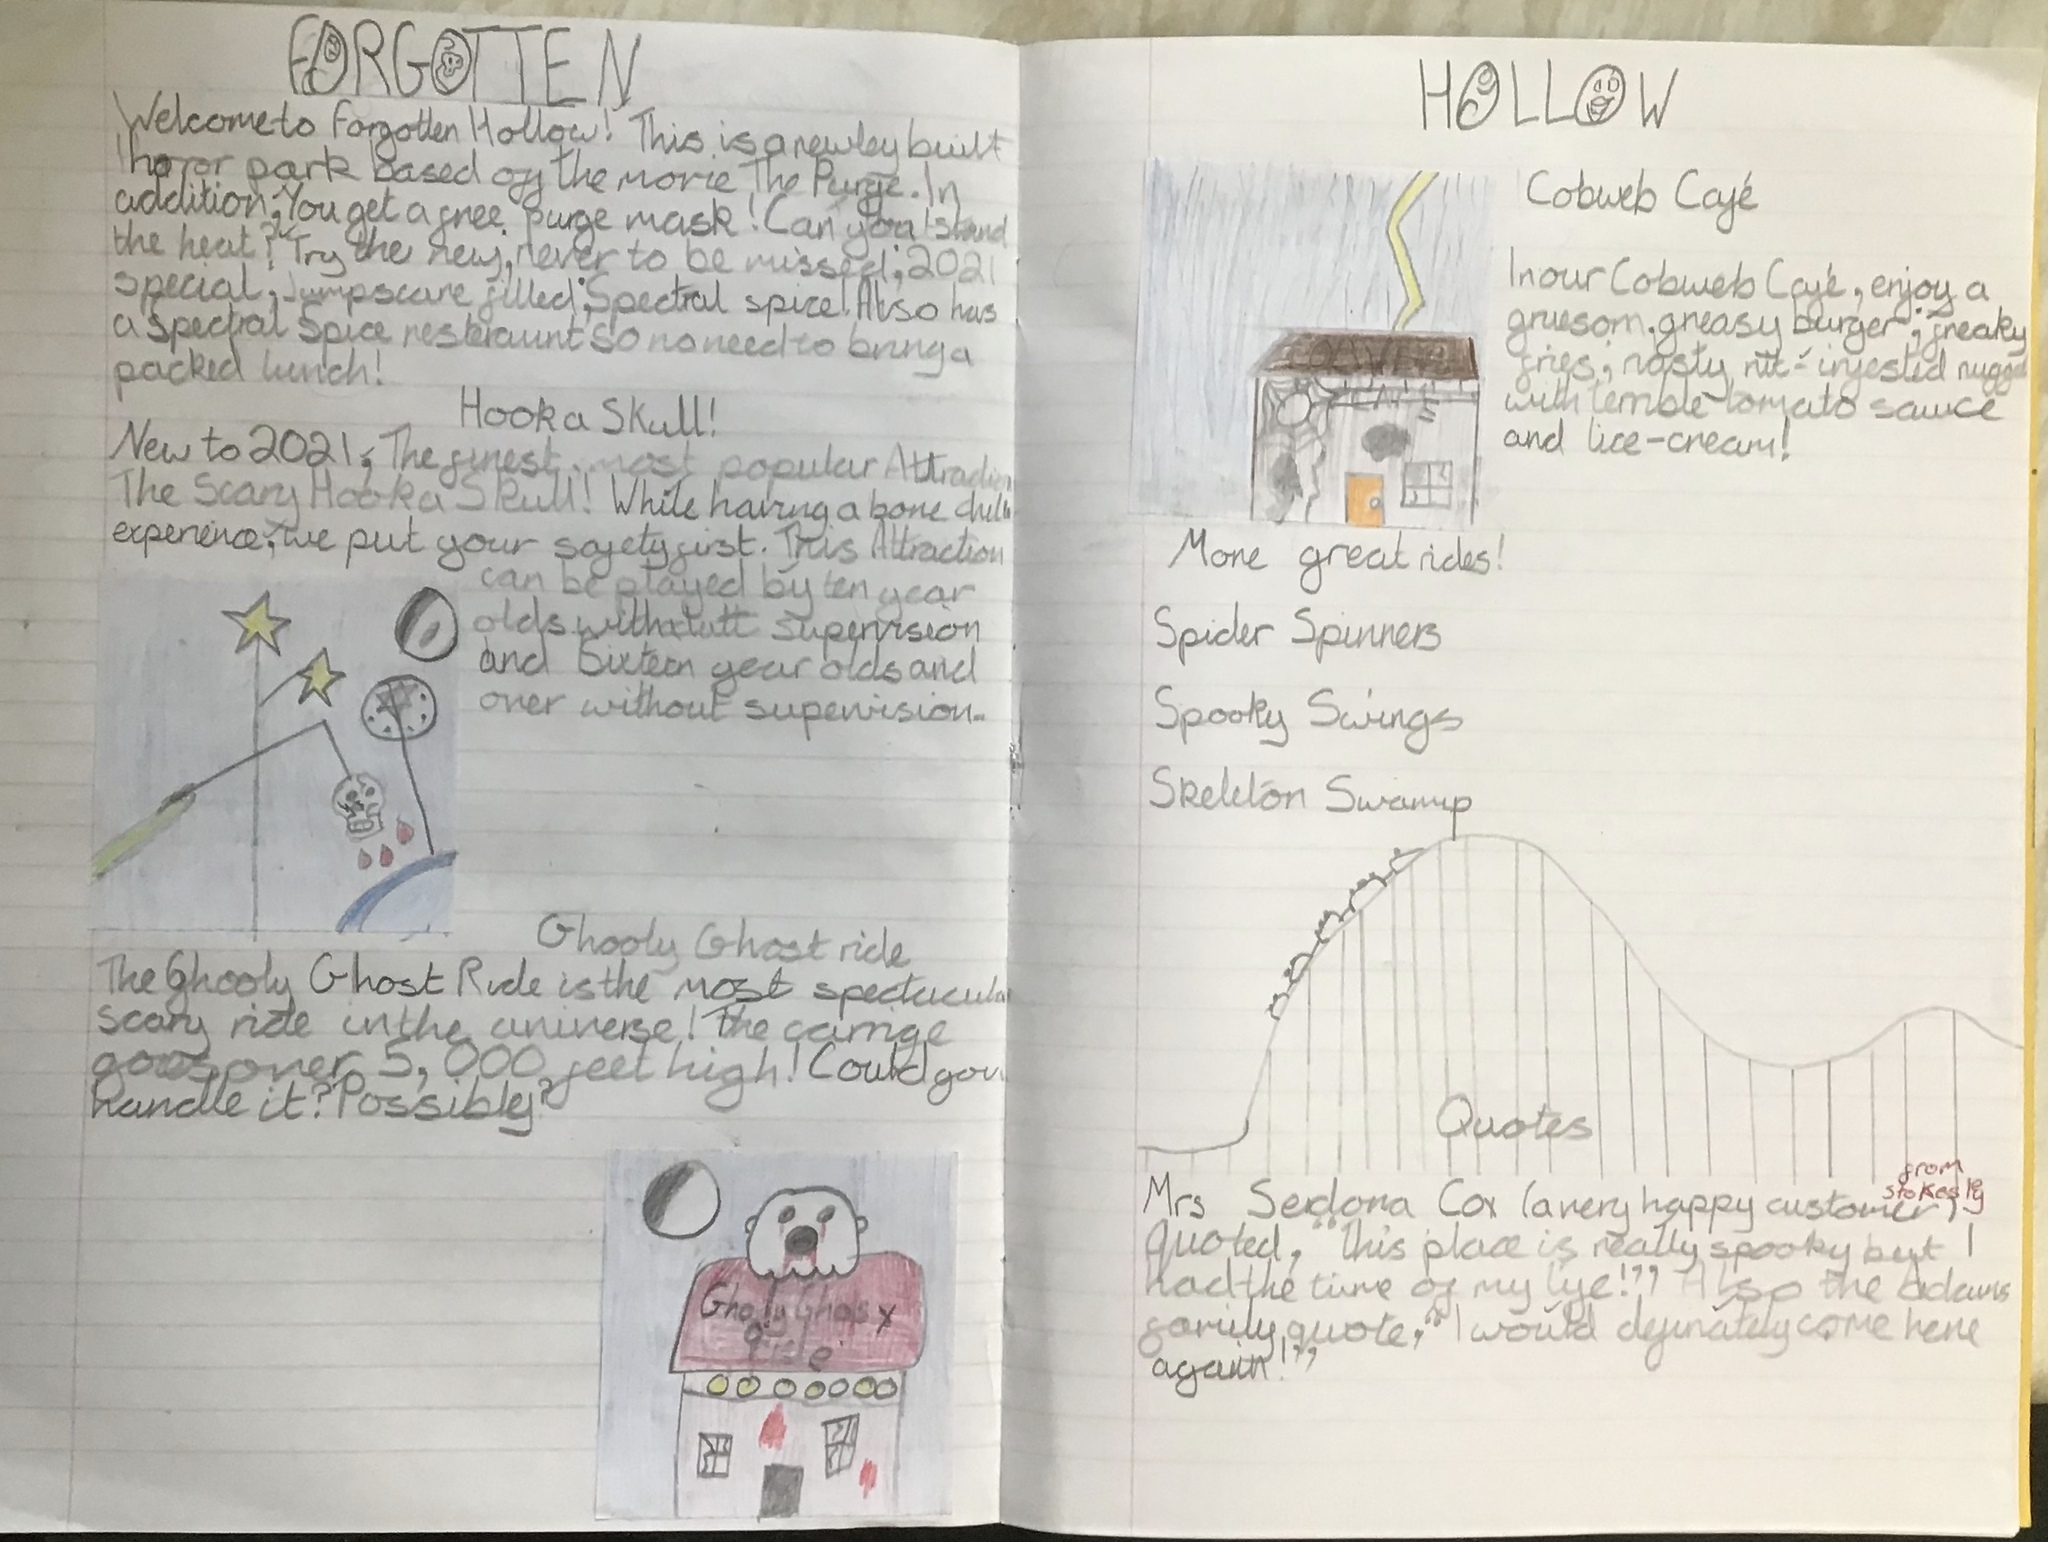 FORGOTTEN
Welcome to Forgotten Hollow! This is a newley built
horror park based off the movie The Purge. In
addition, You get a free purge mask! Can you stand
the heat? Try the new, never to be missed, 2021
special, Jumpscare filled, Spectral spice! Also has
a spectral spice resteraunt so no need to bring a
packed lunch!
Hook a Skull!
New to 2021, The finest, most popular Attraction
The Scary Hook a Skull! While having a bone chill
experience, we put your safety first. This Attraction
can be played by ten year
olds with supervision
and Sixteen year olds and
over without supervision.
Ghooly Ghost ride
The Ghooly Ghost Ride is the most spectacular
scary ride in the universe! The carrige
goes over 5,000 feet high! Could you
handle it? Possibly?
Ghooly Ghost
HOLLOW
Cobweb Café
In our Cobweb Café, enjoy a
gruesom, greasy burger, freaky
fries, nasty nit-infested nugget
with terrible tomato sauce
and lice-cream!
COBWEB
CAFE
More great rides!
Spider Spinners
Spooky Swings
Skeleton Swamp
Quotes
from
stokesley
Mrs Serdona Cox (a very happy customer)
quoted, "This place is really spooky but I
had the time of my life!" Also the adams
family quote, "I would definately come here
again!"